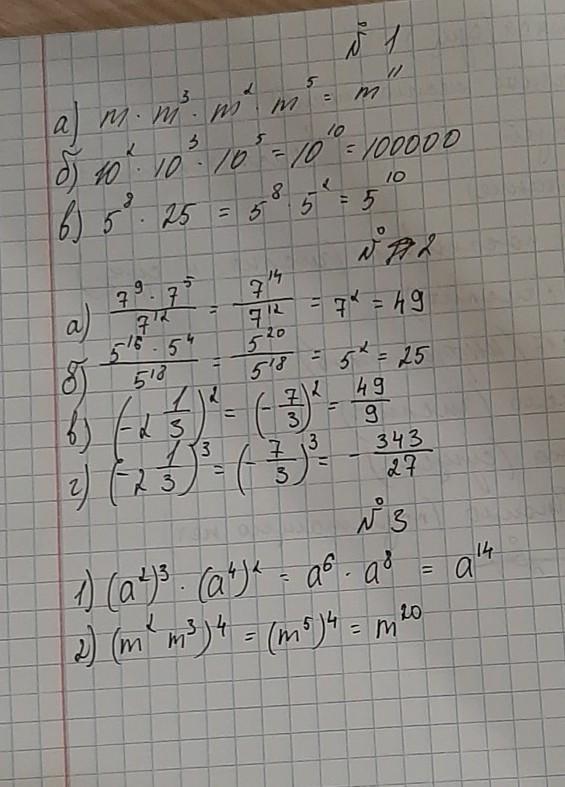 № 1
а) m · m³ · m² · m⁵ = m¹¹
б) 10² · 10³ · 10⁵ = 10¹⁰ = 100000
в) 5⁸ · 25 = 5⁸ · 5² = 5¹⁰
№ 2
а) (7⁹ · 7⁵)/7¹² = 7¹⁴/7¹² = 7² = 49
б) (5¹⁶ · 5⁴)/5¹⁸ = 5²⁰/5¹⁸ = 5² = 25
в) (-2 1/3)² = (-7/3)² = 49/9
г) (-2 1/3)³ = (-7/3)³ = - 343/27
№ 3
1) (a²)³ · (a⁴)² = a⁶ · a⁸ = a¹⁴
2) (m² m³)⁴ = (m⁵)⁴ = m²⁰